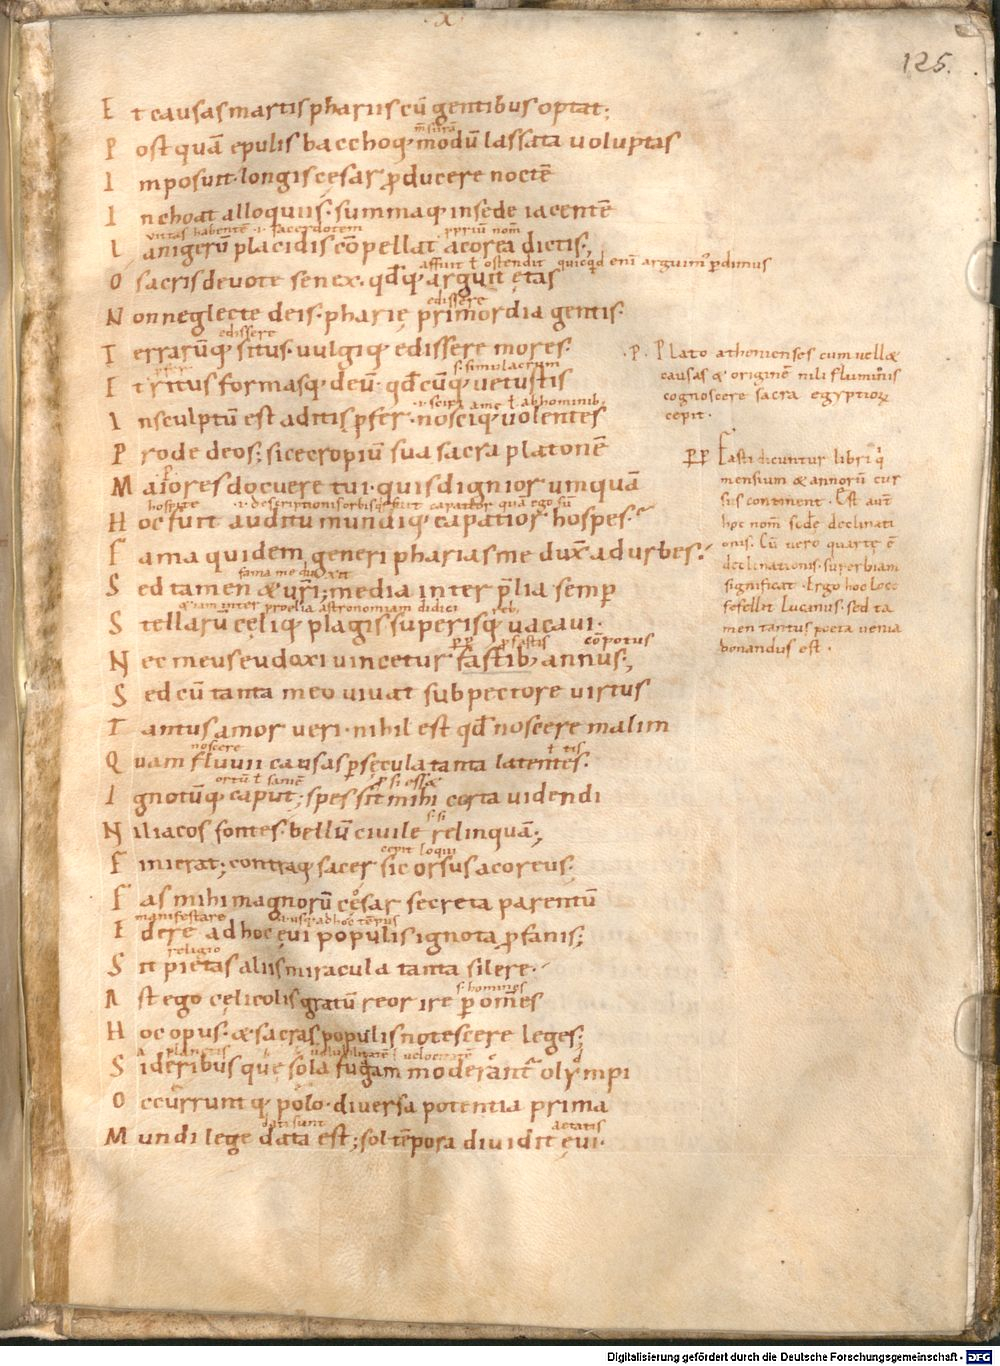 X
125.
E t causas martis phariis cū gentibus optat;
m̄surā
P ost quā epulis bacchoq; modū lassata uoluptas
I mposuit. longis cęsar ꝓducere noctē
I nchoat alloquiis. summaq; in sede iacentē
uittas habentē .i. sacerdotem ꝓpriū nom̄
L anigerū placidis cōpellat acorea dictis;
affuit ł ostendit quicqd eni arguim᾿ ꝓdimus
O sacris deuote senex. qd̄q; arguit ętas
edissere
N on neglecte deis. pharię primordia gentis.
edissere
T errarūq; situs. uulgiq; edissere mores.
s. simulacrum
E t ritus formasq; deū. qd̄cūq; uetustis
ł ab hominib;
I nsculptū est aditis ꝓfer. nosciq; uolentes
P rode deos; si cecropiū sua sacra platonē
M aiores docuere tui. quis dignior umquā
hospite .i. descriptionis orbis fuit capatior quā ego sū
H oc fuit auditu mundiq; capatior hospes.
F ama quidem generi pharias me dux̄ ad urbes.
fama me duxit
S ed tamen & ur̄i; media inter p̄lia semp
etiam inter proelia astronomiam didici
S tellarū cęliq; plagis superisq; uacaui.
PP ꝓ fastis cōpotus
N ec meus eudoxi uincetur fastib; annus;
S ed cū tanta meo uiuat sub pectore uirtus
T antus amor ueri. nihil est qd̄ noscere malim
noscere ł tis
Q uam fluuii causas ꝑ sęcula tanta latentes.
ortū ł ꝓ si esset
I gnotūq; caput; spes sit mihi certa uidendi
s. si
N iliacos fontes. bellū ciuile relinquā;
cepit loqui
F inierat; contraq; sacer sic orsus acoreus.
F as mihi magnorū cęsar secreta parentū
manifestare usq; ad hoc tēpus
E dere ad hoc ęui populis ignota ꝓfanis;
religio
S it pietas aliis miracula tanta silere.
s. homines
A st ego cęlicolis gratū reor ire ꝑ om̄es
H oc opus. & sacras populis notescere leges;
planetis uolubilitatē ł uelocitatē
S ideribus quę sola fugam moderant᾿ olympi
O ccurrunt q; polo. diuersa potentia prima
dati sunt aetatis
M undi lege data est; sol tēpora diuidit ęui.
.P. Plato athonienses cum uellet
causas & originē nili fluminis
cognoscere sacra egyptiorꝝ
cepit.
PP Fasti dicuntur libri q̄
mensium & annorū cur
sus continent. Est aut̄
hoc nom̄ scd̄e declinati
onis. Cū uero quartę ē
declinationis. superbiam
significat. Ergo hoc loco
fefellit Lucanus. sed ta
men tantus poeta uenia
donandus est.
Digitalisierung gefördert durch die Deutsche Forschungsgemeinschaft - DFG